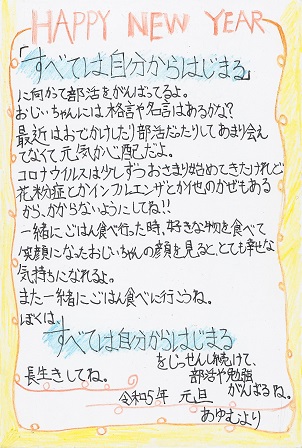 HAPPY NEW YEAR
「すべては自分からはじまる」
に向かって部活をがんばってるよ。
おじいちゃんには格言や名言はあるかな?
最近はおでかけしたり部活だったりしてあまり会え
てなくて元気か心配だよ。
コロナウイルスは少しずつおさまり始めてきたけれど
花粉症とかインフルエンザとか他のかぜもある
から、かからないようにしてね!!
一緒にごはん食べ行った時、好きな物を食べて
笑顔になったおじいちゃんの顔を見ると、とても幸せな
気持ちになれるよ。
また一緒にごはん食べに行こうね。
ぼくは、
すべては自分からはじまる
をじっせんし続けて、
部活や勉強
がんばるね。
長生きしてね。
令和5年 元旦
あゆむより